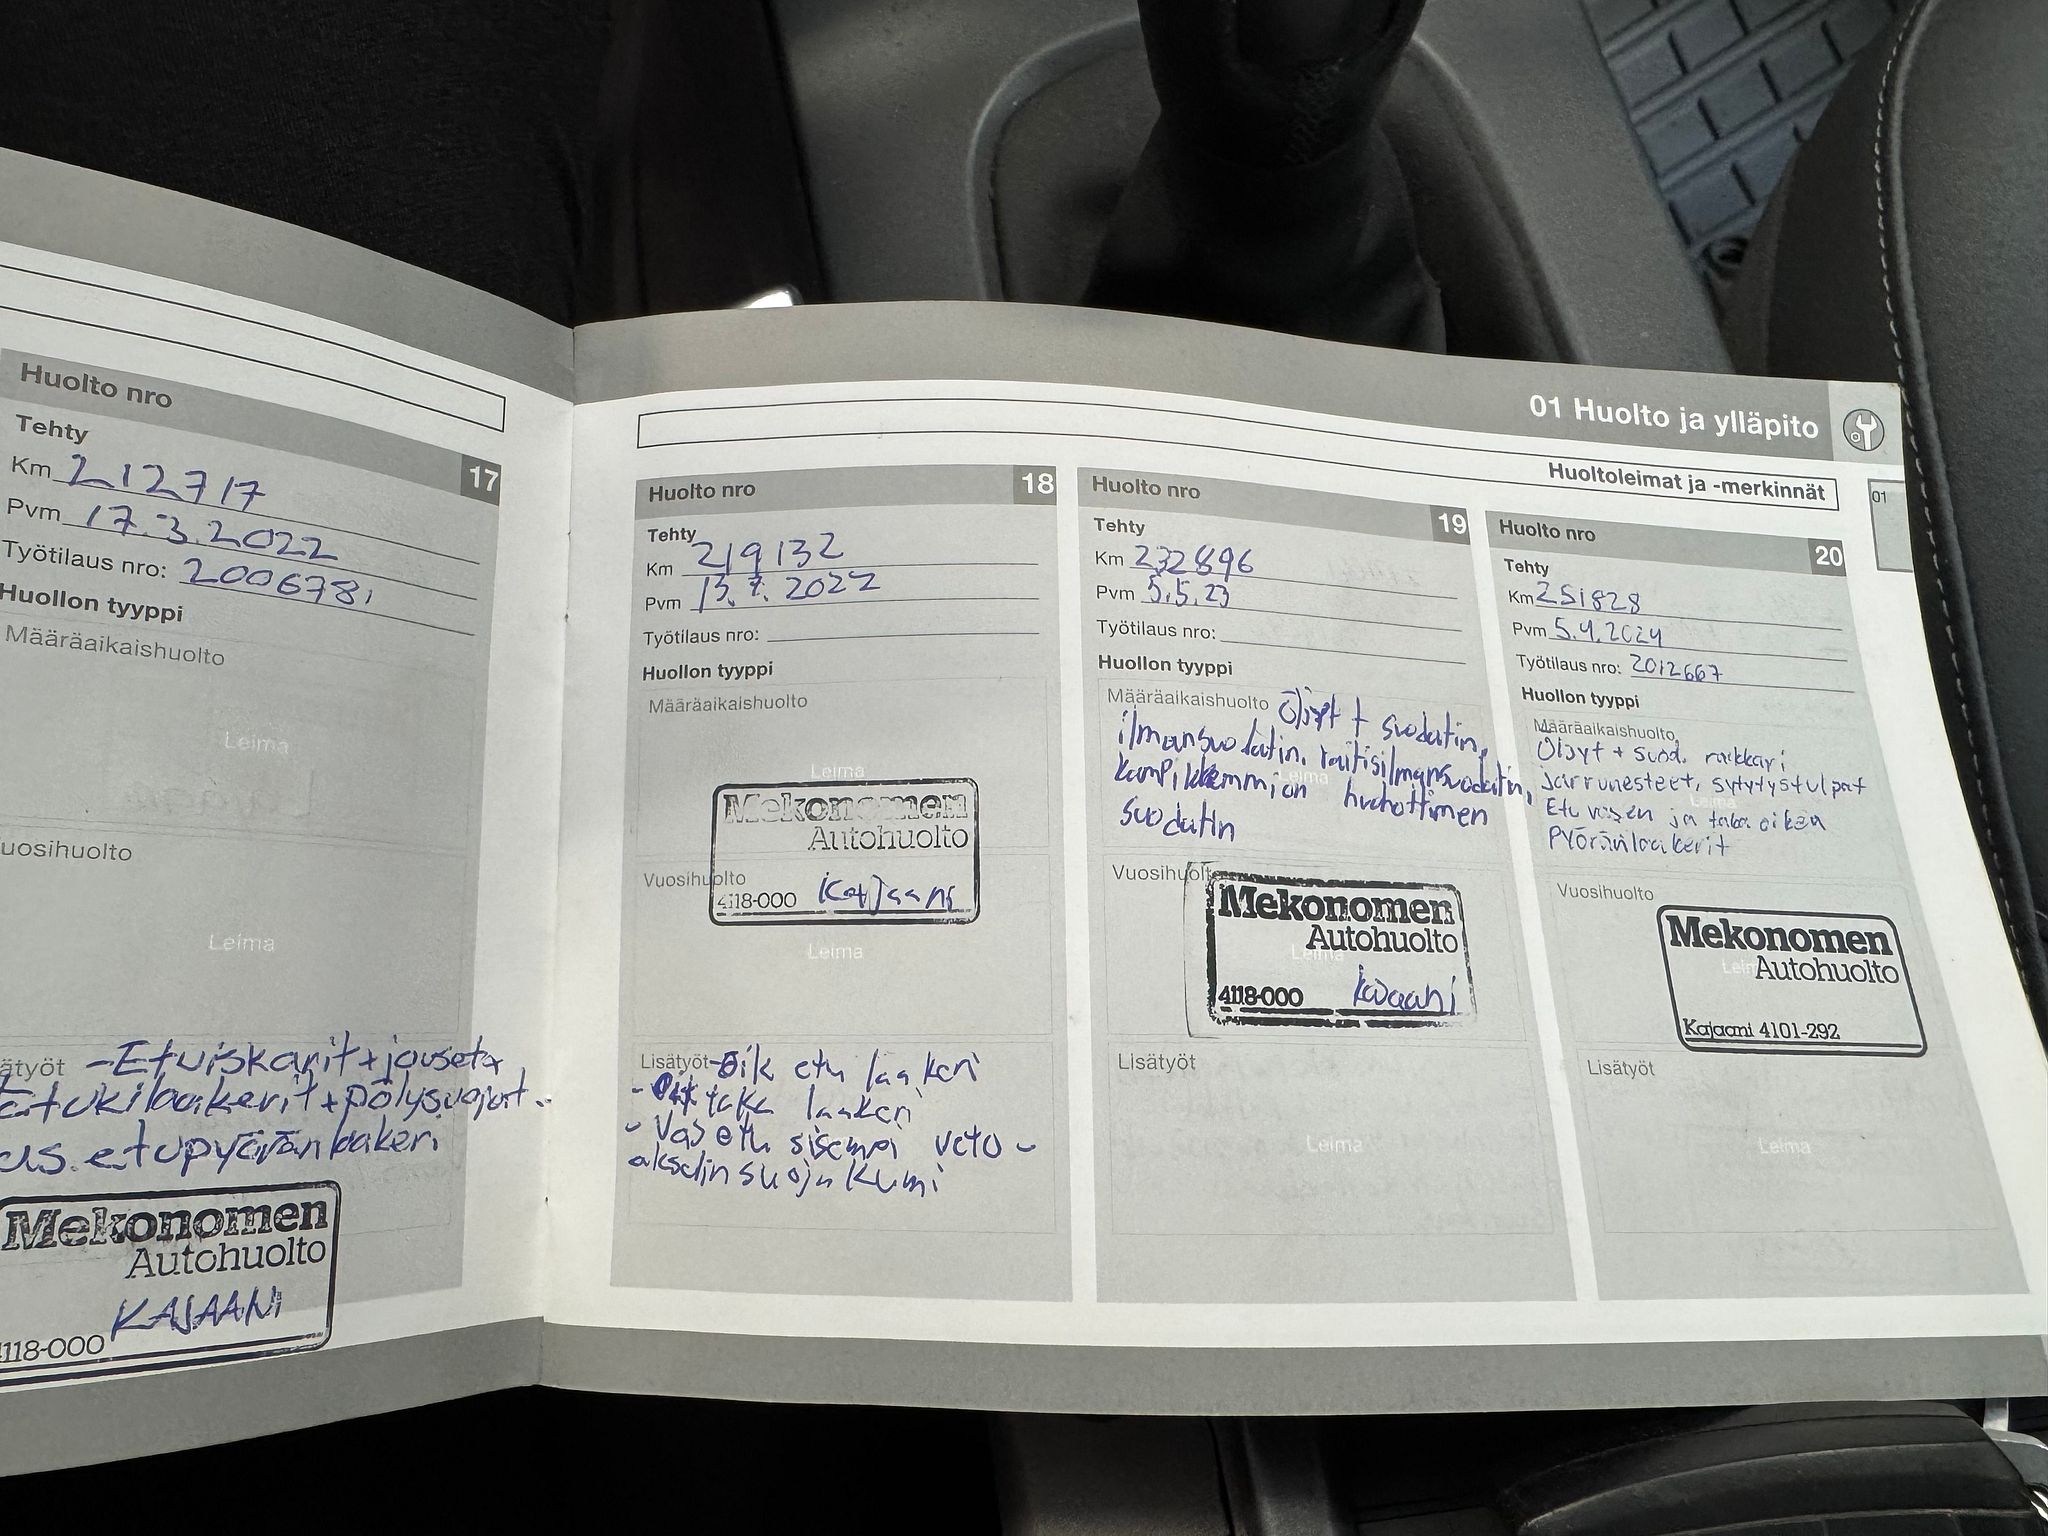 Huolto nro 17
Tehty
Km 212717
Pvm 17.3.2022
Työtilaus nro: 2006781
Huollon tyyppi
Määräaikaishuolto
Leima
uosihuolto
Leima
ätyöt -Etuiskarit+jouset+
etukilaakerit+pölysuojat.
as. etupyörän laakeri
Mekonomen
Autohuolto
KAJAANI
4118-000
01 Huolto ja ylläpito
Huoltoleimat ja -merkinnät
01
Huolto nro 18
Tehty
Km 219132
Pvm 13.7.2022
Työtilaus nro:
Huollon tyyppi
Määräaikaishuolto
Leima
Mekonomen
Autohuolto
Vuosihuolto
4118-000 Kajaani
Leima
Lisätyöt -Oik etu laakeri
- Oik taka laakeri
- Vas etu sisempi veto-
akselin suojakumi
Huolto nro 19
Tehty
Km 232896
Pvm 5.5.23
Työtilaus nro:
Huollon tyyppi
Määräaikaishuolto Öljyt + suodatin,
ilmansuodatin, raitisilmansuodatin,
kampikammion huohottimen
suodatin
Leima
Vuosihuolto
Mekonomen
Autohuolto
Leima
4118-000 Kajaani
Lisätyöt
Leima
Huolto nro 20
Tehty
Km 251828
Pvm 5.4.2024
Työtilaus nro: 2012667
Huollon tyyppi
Määräaikaishuolto
Öljyt + suod. raikkari
jarrunesteet, sytytystulpat
Etu vasen ja taka oikea
Pyöränlaakerit
Leima
Vuosihuolto
Mekonomen
Leima
Autohuolto
Kajaani 4101-292
Lisätyöt
Leima